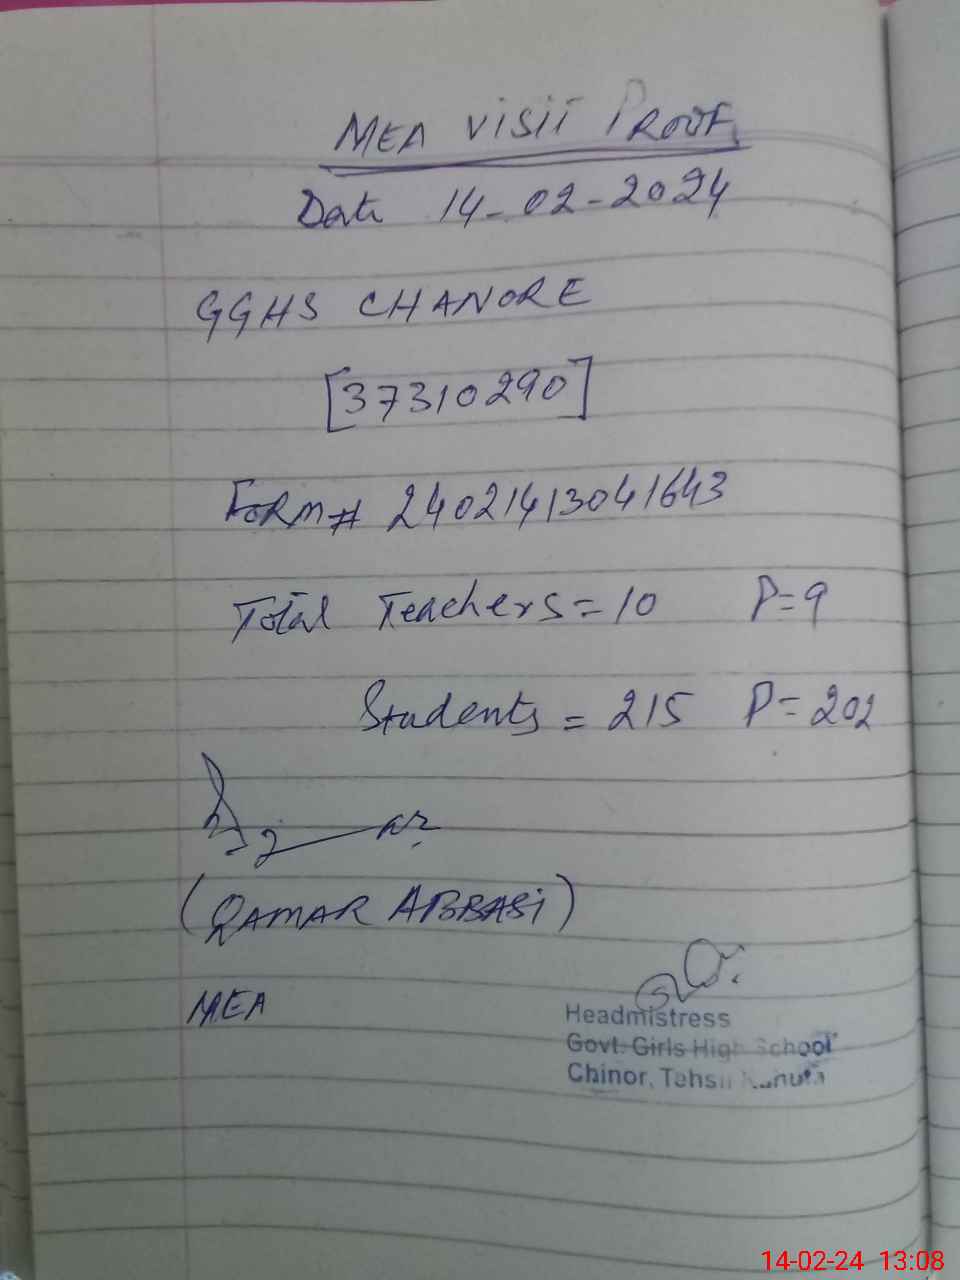 MEA VISIT PROOF
Date 14-02-2024
GGHS CHANORE
[37310290]
FORM # 24021413041643
Total Teachers = 10 P=9
Students = 215 P=202
(QAMAR ABBASI)
MEA
Headmistress
Govt. Girls High School
Chinor, Tehsil Kahuta
14-02-24 13:08